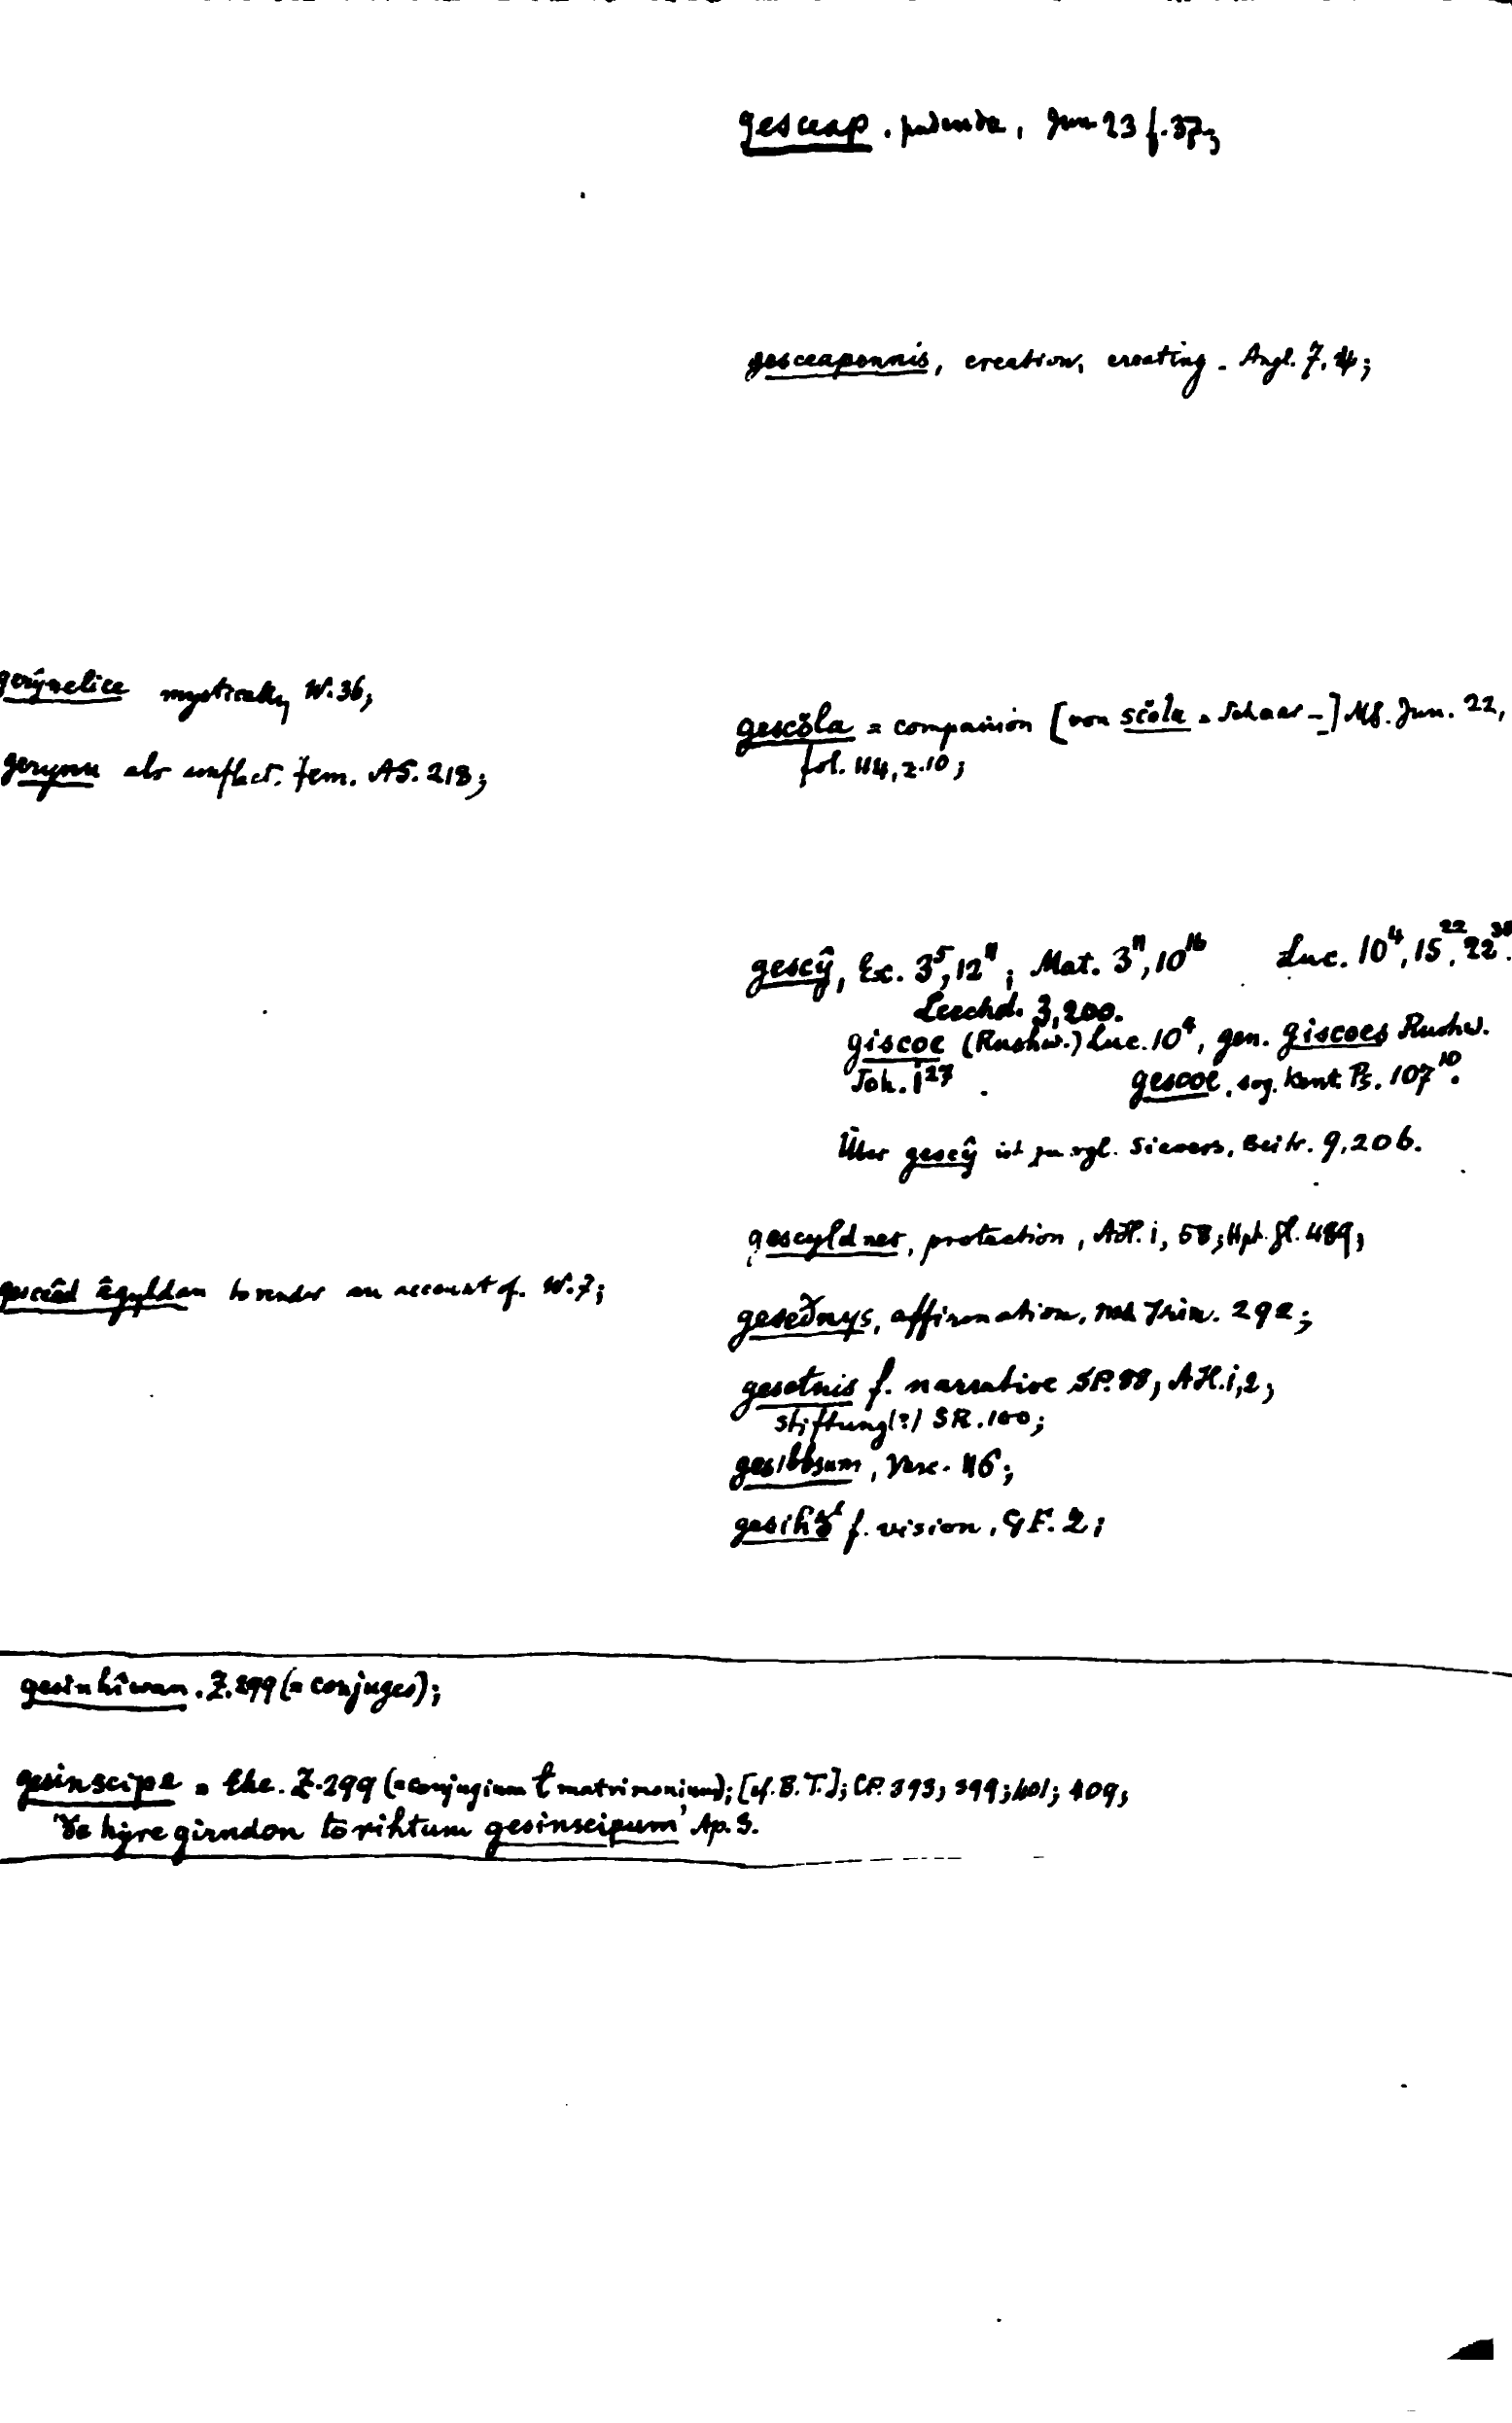 gesceap. pudenda, Jun 23 f. 37;
gesceapennis, creation, creating. Angl. 7, 4;
gerŷnelice mystically W. 36;
gerynu als unflect. fem. AS. 218;
gescŏla = companion [von scŏla = Schaar -] MS. Jun. 22,
fol. 44, z. 10;
gescŷ, Ex. 3⁵, 12¹¹; Mat. 3¹¹, 10¹⁰ Luc. 10⁴, 15²², 22³⁵.
Leechd. 3, 200.
giscoe (Rushw.) Luc. 10⁴, gen. giscoes Rushw.
Joh. i²⁷. gescoe, sog. Kent. Ps. 107¹⁰.
Über gescŷ ist zu vgl. Sievers, Beitr. 9, 206.
gescyldnes, protection, AH. i, 58; Hpt. gl. 489;
gescêad âgyldan to render an account of. W. 7;
geseðnys, affirmation, 292;
gesetnis f. narrative SP. 88, AH. i, 2;
Stiftung(?) SR. 100;
gesibbsum, Verc. 46;
gesihð f. vision, GF. 2;
gesinhîwan. Z. 299 (= conjuges);
gesinscipe = Ehe. Z. 299 (= conjugium ƚ matrimonium); [cf. B. T.]; CP. 393; 399; 401; 409;
'ðe hyre girndon to rihtum gesinscipum' Ap. 3.